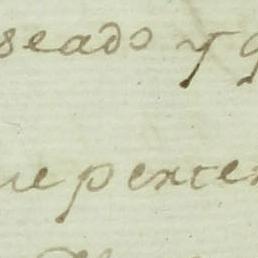 seado y q
ue perten